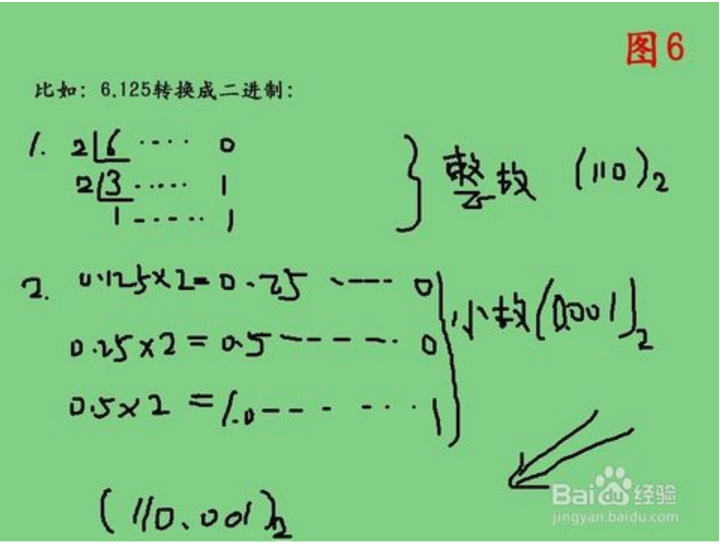 图6
比如：6.125转换成二进制：
1. 2 6 ···· 0
2 3 ····· 1
1 ----·· 1
整数 (110)₂
2. 0.125×2=0.25 ---- 0
0.25×2=0.5 ------ 0
0.5×2=1.0--- ···· 1
小数(0.001)₂
(110.001)₂
Baidu经验
jingyan.baidu.com